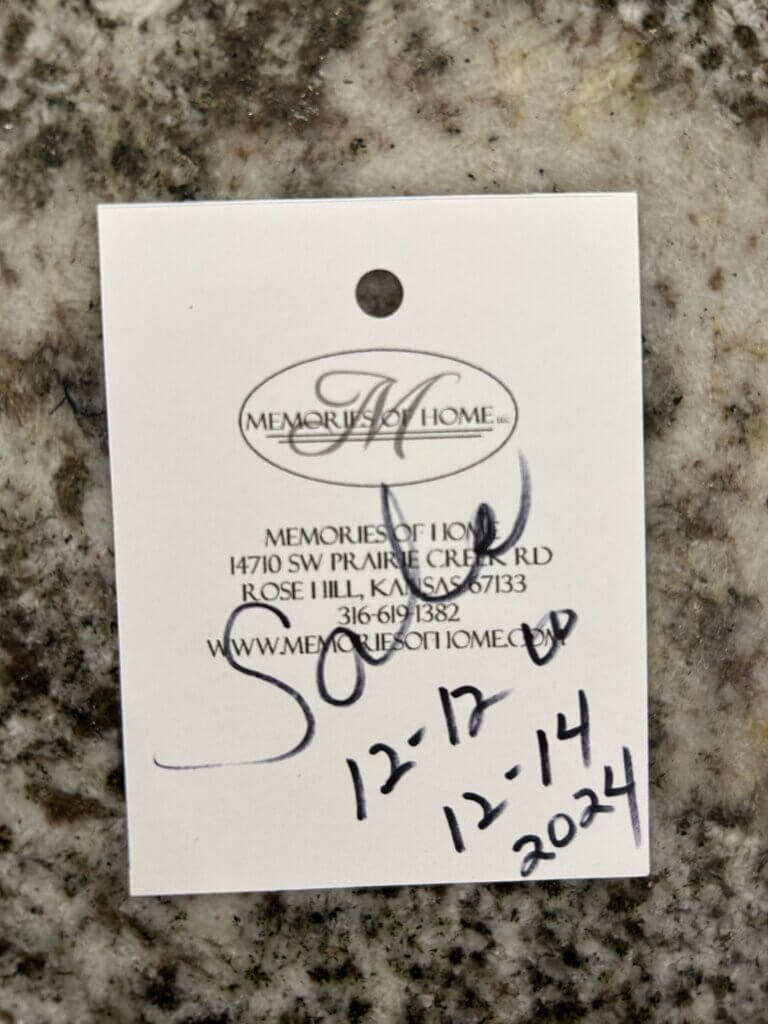 M
MEMORIES OF HOME LLC
MEMORIES OF HOME
14710 SW PRAIRIE CREEK RD
ROSE HILL, KANSAS 67133
316-619-1382
WWW.MEMORIESOFHOME.COM
Sale
12-12
12-14
2024